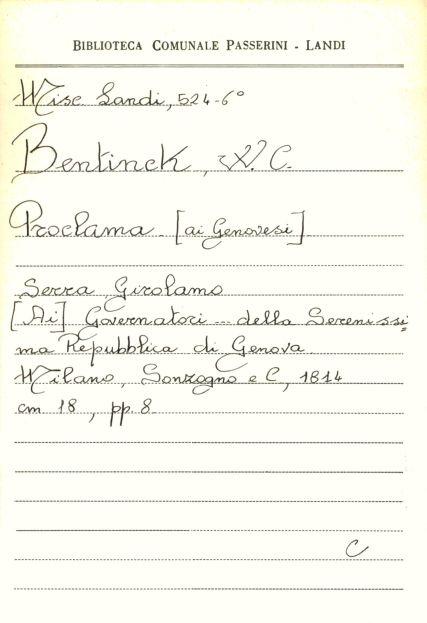 BIBLIOTECA COMUNALE PASSERINI - LANDI
Misc Landi, 524-6°
Bentinck, W. C.
Proclama [ai Genovesi]
Serra Girolamo
[Ai] Governatori ... della Serenissi=
ma Repubblica di Genova
Milano, Sonzogno e C, 1814
cm 18, pp. 8
C